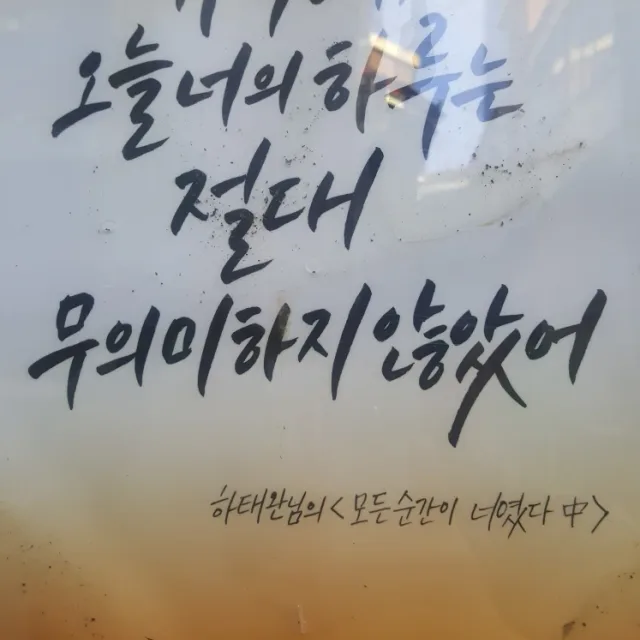 오늘 너의 하루는
절대
무의미하지 않았어
하태완님의 <모든 순간이 너였다 中>